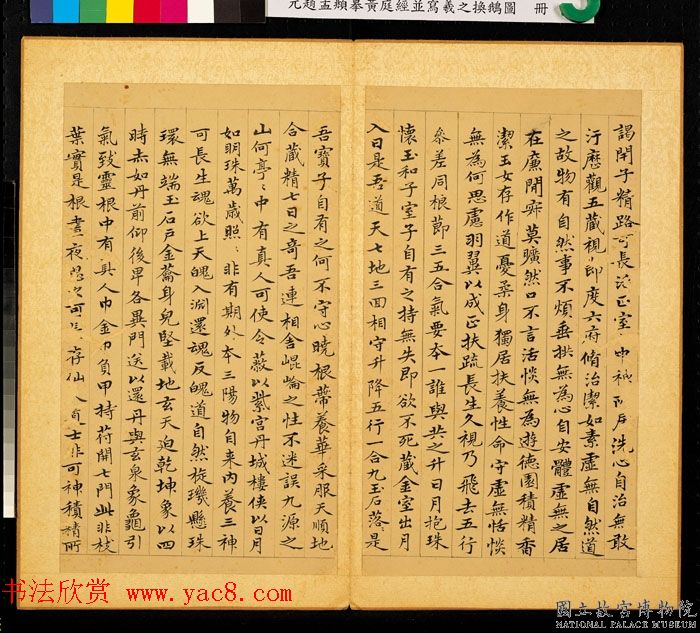 元趙孟頫摹黃庭經並寫羲之換鵝圖 冊
謁閉子精路可長活正室之中神所居洗心自治無敢
汙歷觀五藏視節度六府脩治潔如素虛無自然道
之故物有自然事不煩垂拱無為心自安體虛無之居
在廉閒寂莫曠然口不言活惔無為遊德園積精香
潔玉女存作道憂柔身獨居扶養性命守虛無恬惔
無為何思慮羽翼以成正扶疏長生久視乃飛去五行
參差同根節三五合氣要本一誰與共之升日月抱珠
懷玉和子室子自有之持無失即欲不死藏金室出月
入日是吾道天七地三回相守升降五行一合九玉石落是
吾寶子自有之何不守心曉根蒂養華采服天順地
合藏精七日之奇吾連相舍崐崘之性不迷誤九源之
山何亭〻中有真人可使令蔽以紫宮丹城樓俠以日月
如明珠萬歲照〻非有期外本三陽物自来内養三神
可長生魂欲上天魄入淵還魂反魄道自然旋璣懸珠
環無端玉石戶金籥身皃堅載地玄天迫乾坤象以四
時赤如丹前仰後卑各異門送以還丹與玄泉象龜引
氣致靈根中有真人巾金巾負甲持苻開七門此非枝
葉實是根晝夜思之可長存仙人道士非可神積精所
书法欣赏 www.yac8.com
國立故宮博物院
NATIONAL PALACE MUSEUM